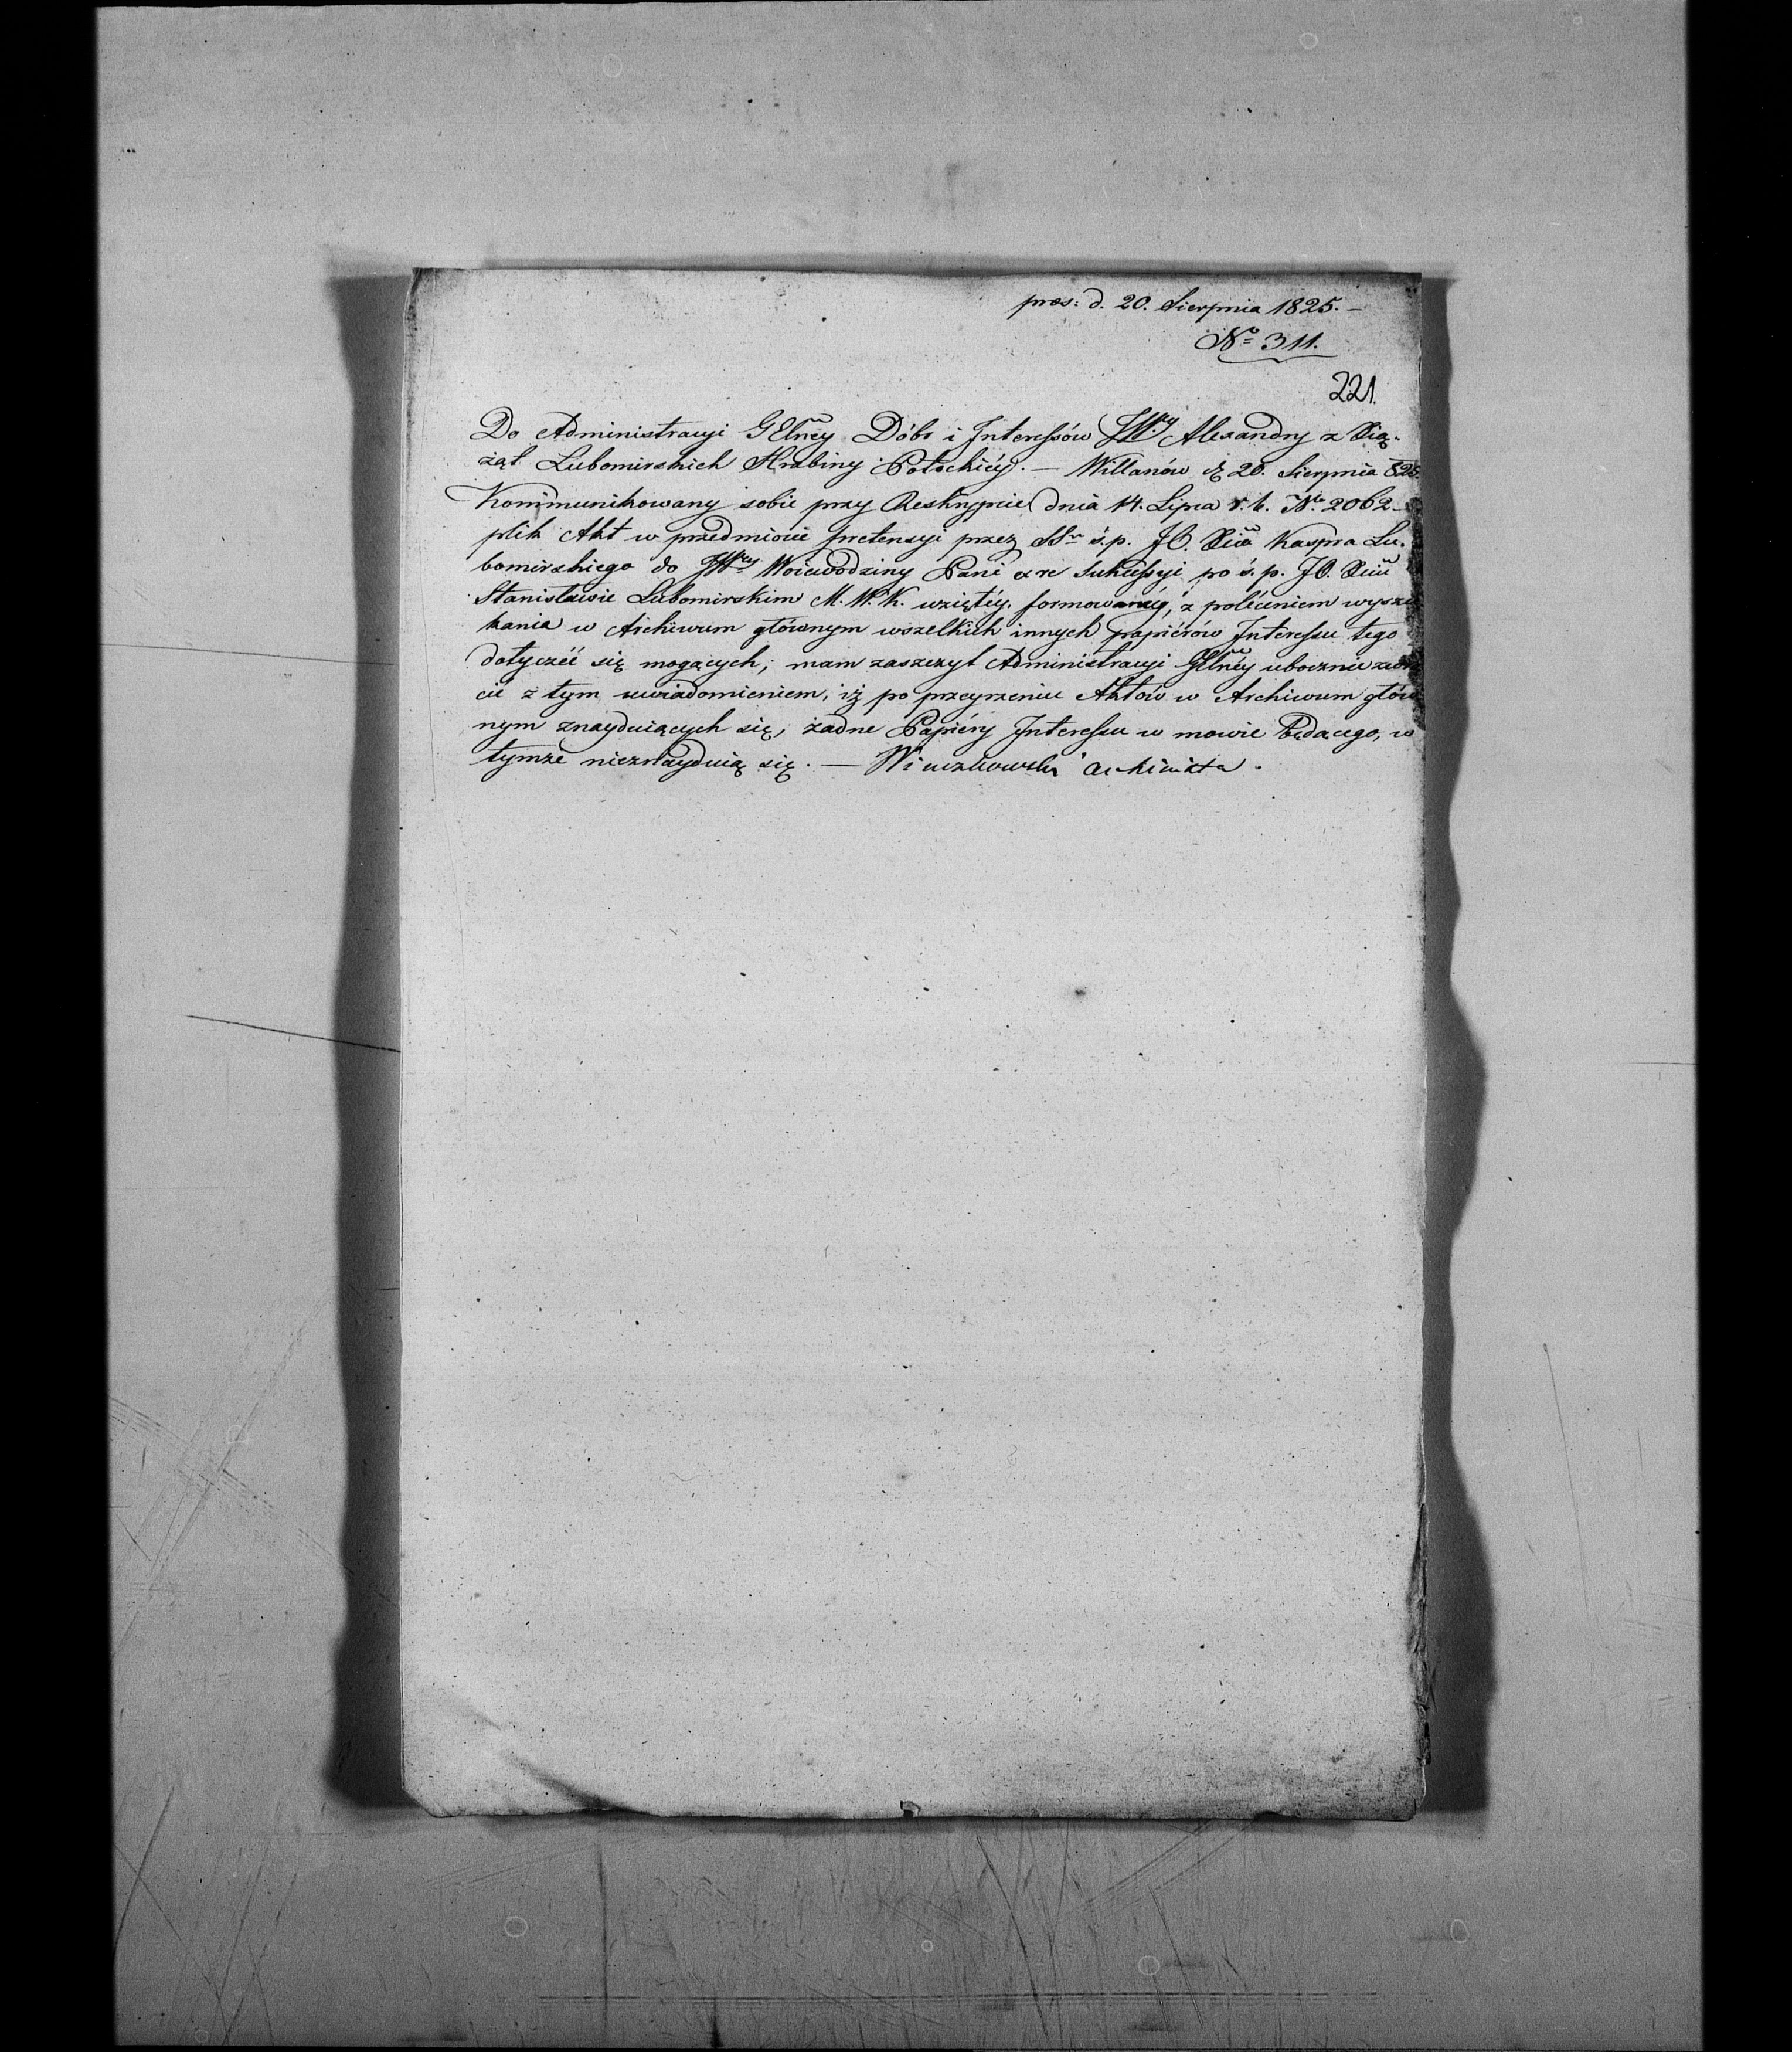 præs: d. 20. Sierpnia 1825. —
No 311.
221.
Do Administracyi GElnéy Dóbr i Interessów JW. Alexandry z Xią-
żąt Lubomirskich Hrabiny Potockiéy. — Willanów d. 20. Sierpnia 825
Kommunikowany sobie przy Reskrypcie dnia 14. Lipca r. b. No. 2062
plik Akt w przedmiocie pretensyi przez SSr ś.p. JO. Xcia Kaspra Lu-
bomirskiego do JW. Woiewodziny Pani ex re Sukcessyi po ś.p. JO. Xciu
Stanisławie Lubomirskim M. W. K. wziętéy, formowanéy, z poleceniem wyszu
kania w Archiwum głównym wszelkich innych papiérów Interessu tego
dotyczéć się mogących; mam zaszczyt Administracyi GElnéy ubocznie zwró
cić z tym uwiadomieniem, iż po przeyrzeniu Aktów w Archiwum głów
nym znayduiących się, żadne Papiéry Interessu w mowie będącego, w
tymże nieznayduią się. — archiwista.